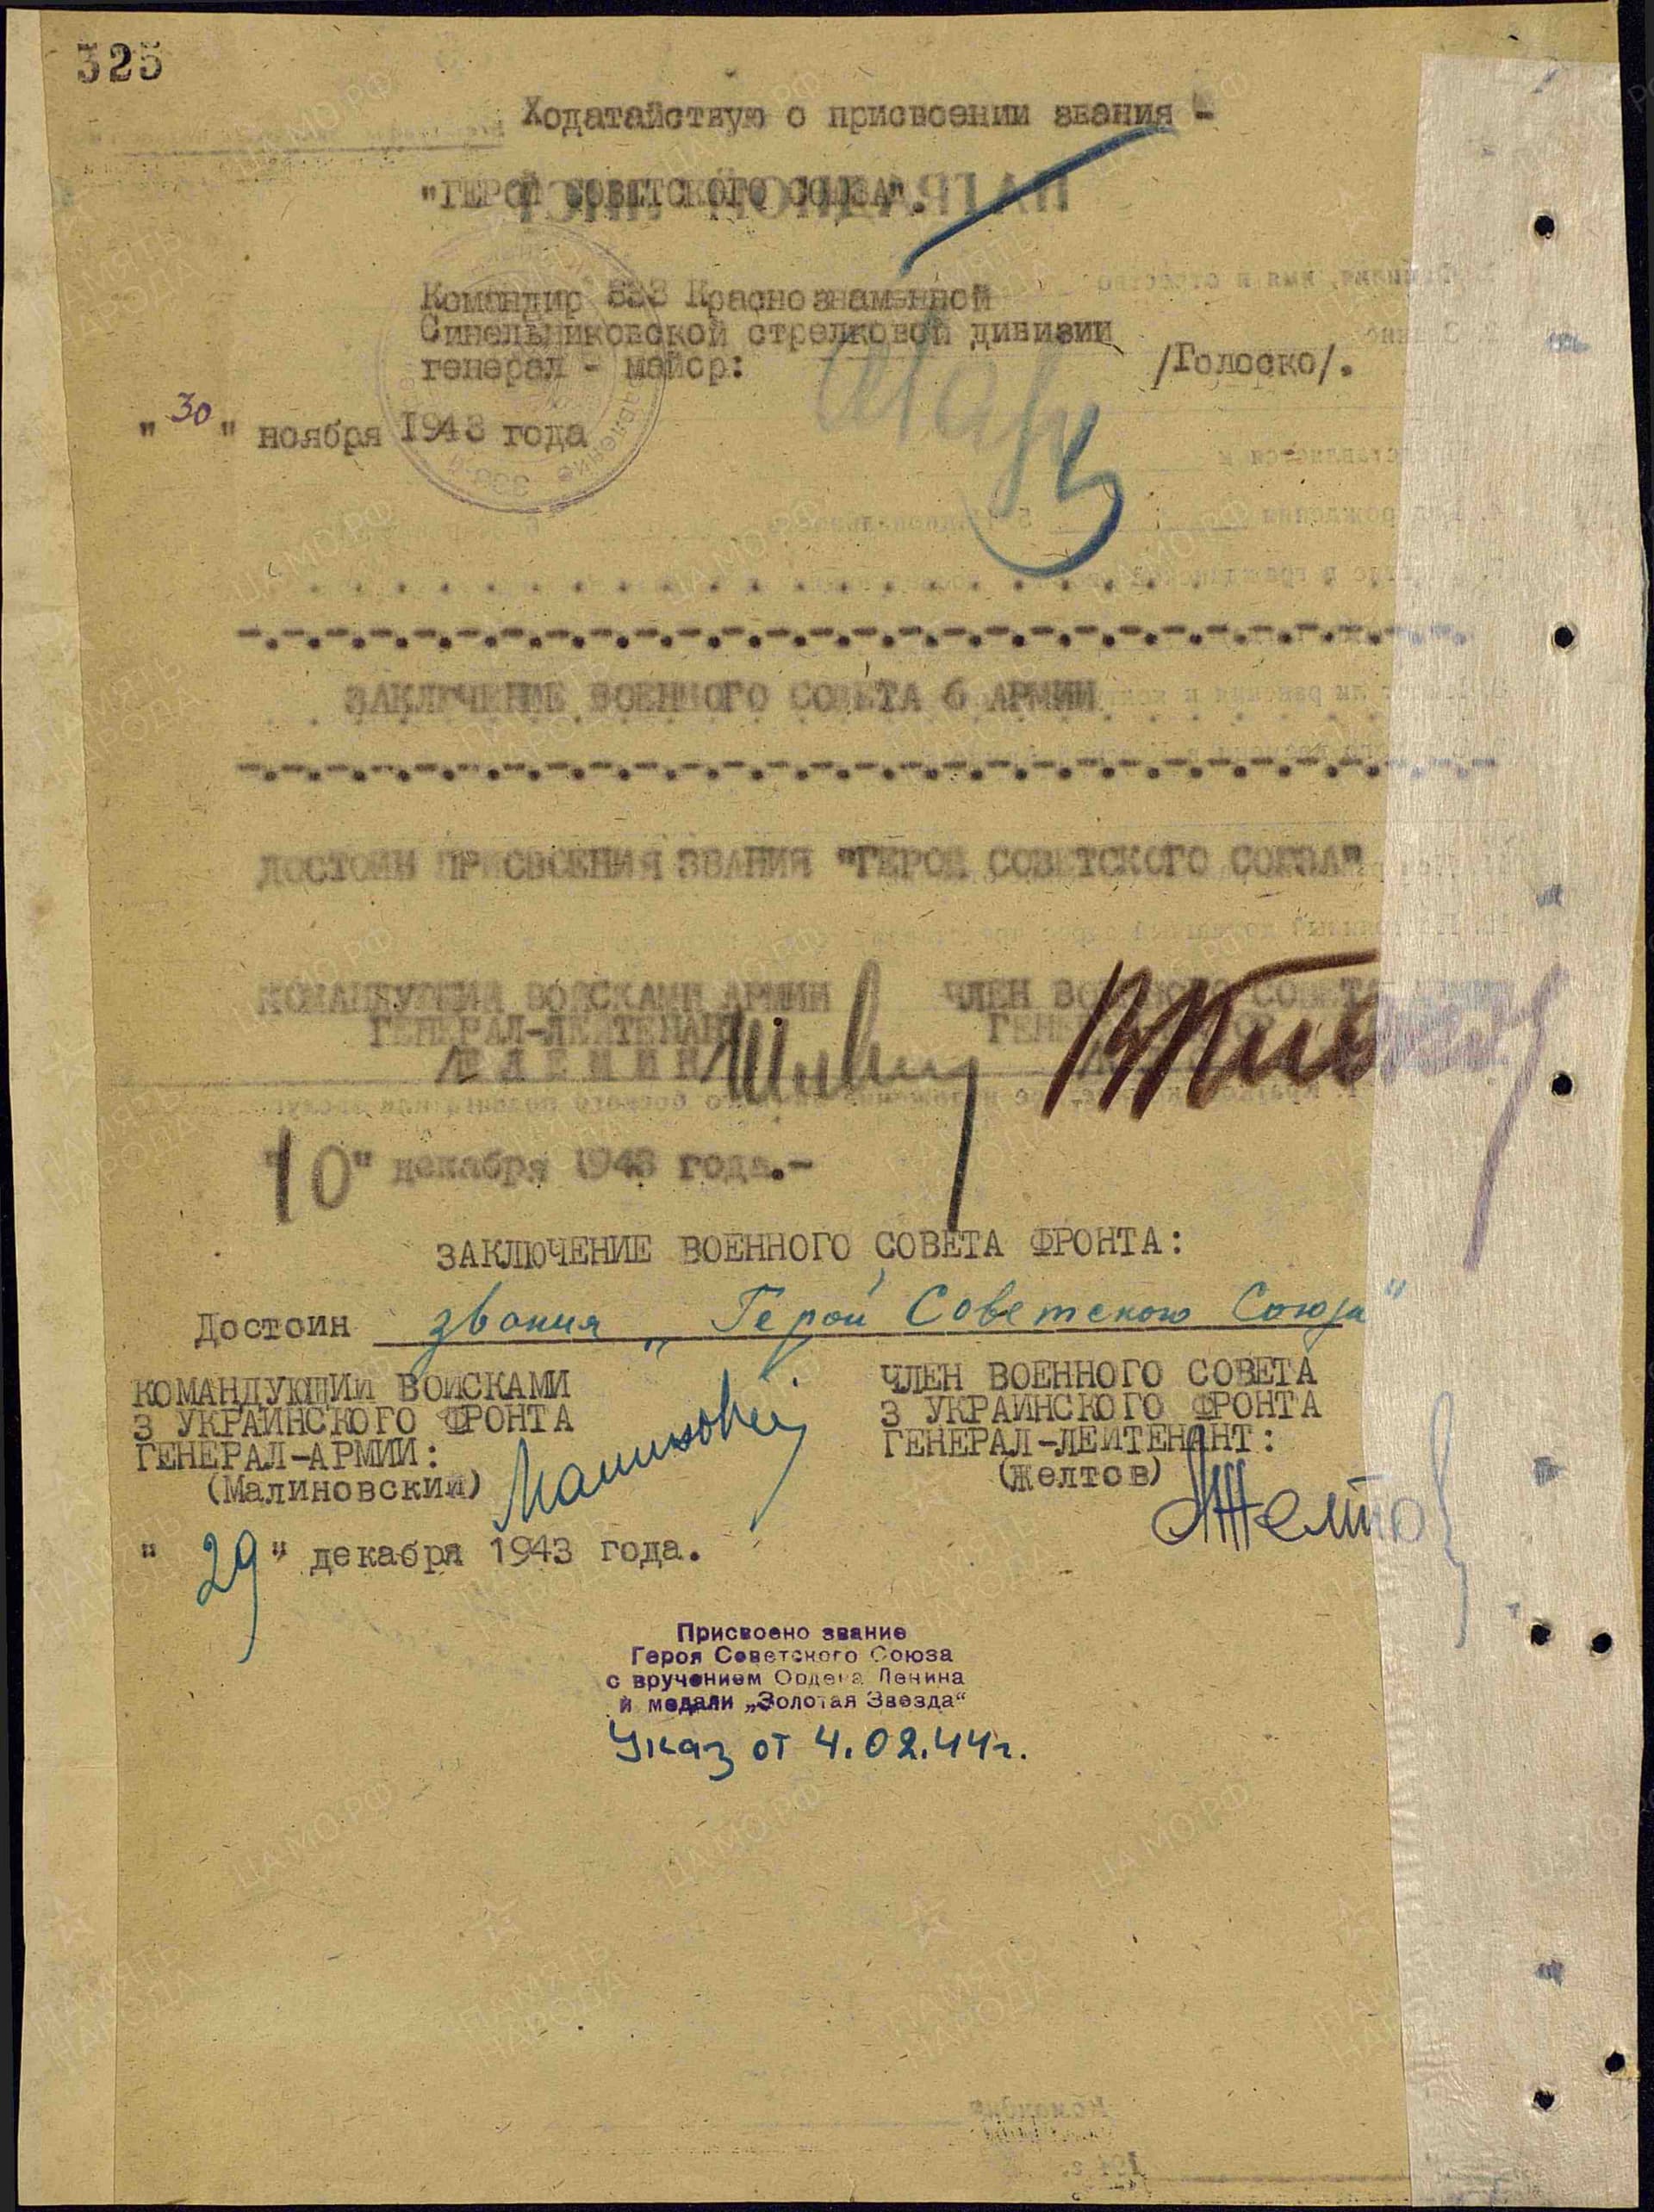 325
Ходатайствую о присвоении звания -
"ГЕРОЙ СОВЕТСКОГО СОЮЗА".
Командир 333 Краснознаменной
Синельниковской стрелковой дивизии
генерал - майор: /Голоско/.
"30" ноября 1943 года
ЗАКЛЮЧЕНИЕ ВОЕННОГО СОВЕТА 6 АРМИИ
ДОСТОИН ПРИСВОЕНИЯ ЗВАНИЯ "ГЕРОЙ СОВЕТСКОГО СОЮЗА"
КОМАНДУЮЩИЙ ВОЙСКАМИ АРМИИ ЧЛЕН ВОЕННОГО СОВЕТА АРМИИ
ГЕНЕРАЛ-ЛЕЙТЕНАНТ
"10" декабря 1943 года.-
ЗАКЛЮЧЕНИЕ ВОЕННОГО СОВЕТА ФРОНТА:
Достоин звания „Герой Советского Союза"
КОМАНДУЮЩИЙ ВОЙСКАМИ ЧЛЕН ВОЕННОГО СОВЕТА
3 УКРАИНСКОГО ФРОНТА 3 УКРАИНСКОГО ФРОНТА
ГЕНЕРАЛ-АРМИИ: ГЕНЕРАЛ-ЛЕЙТЕНАНТ:
(Малиновский) (Желтов)
"29" декабря 1943 года.
Присвоено звание
Героя Советского Союза
с вручением Ордена Ленина
и медали „Золотая Звезда“
Указ от 4.02.44г.
ЦА МО.РФ
ПАМЯТЬ НАРОДА